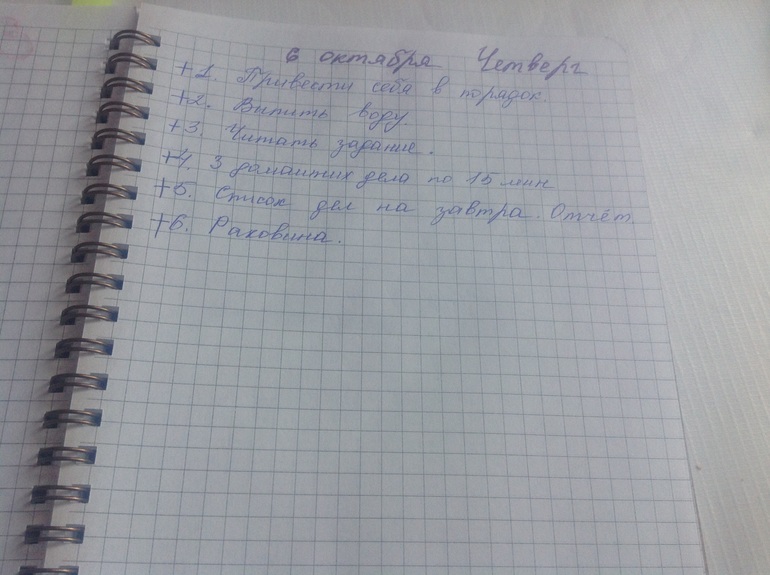 6 октября Четверг
+1. Привести себя в порядок.
+2. Выпить воду.
+3. Читать задание.
+4. 3 домашних дела по 15 мин
+5. Список дел на завтра. Отчёт.
+6. Раковина.